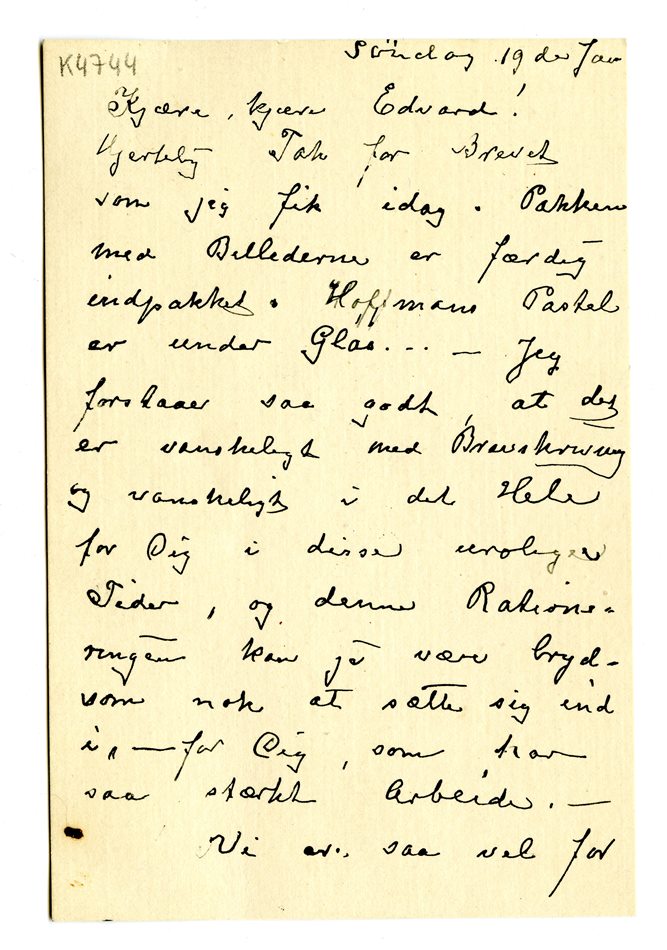 K4744
Söndag 19de Jan
Kjære, kjære Edvard!
Hjertelig Tak for Brevet
som jeg fik idag. Pakken
med Billederne er færdig
indpakket. Hoffmans Pastel
er under Glas... — Jeg
forstaaer saa godt, at det
er vanskeligt med Brevskrivning
og vanskeligt i det Hele
for Dig i disse urolige
Tider, og denne Ratione-
ringen kan jo være bryd-
som nok at sætte sig ind
i, — for Dig, som har
saa stærkt Arbeide. —
Vi er saa vel for